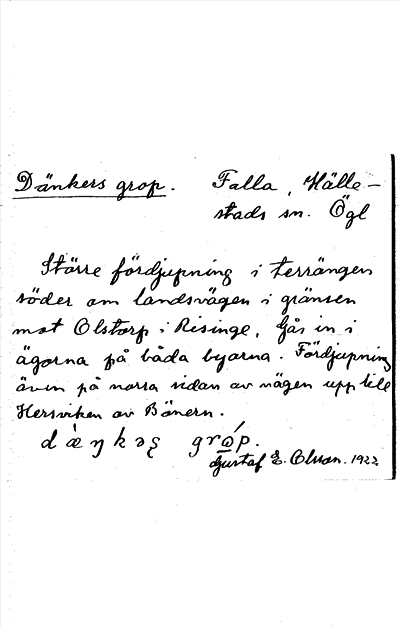 Dänkers grop. Falla, Hälle-
stads sn. Ögl
Större fördjupning i terrängen
söder om landsvägen i gränsen
mot Olstorp i Risinge, Går in i
ägorna på båda byarna. Fördjupning
även på norra sidan av vägen upp till
Hersviken av Bönern.
Gustaf E. Olsson. 1922